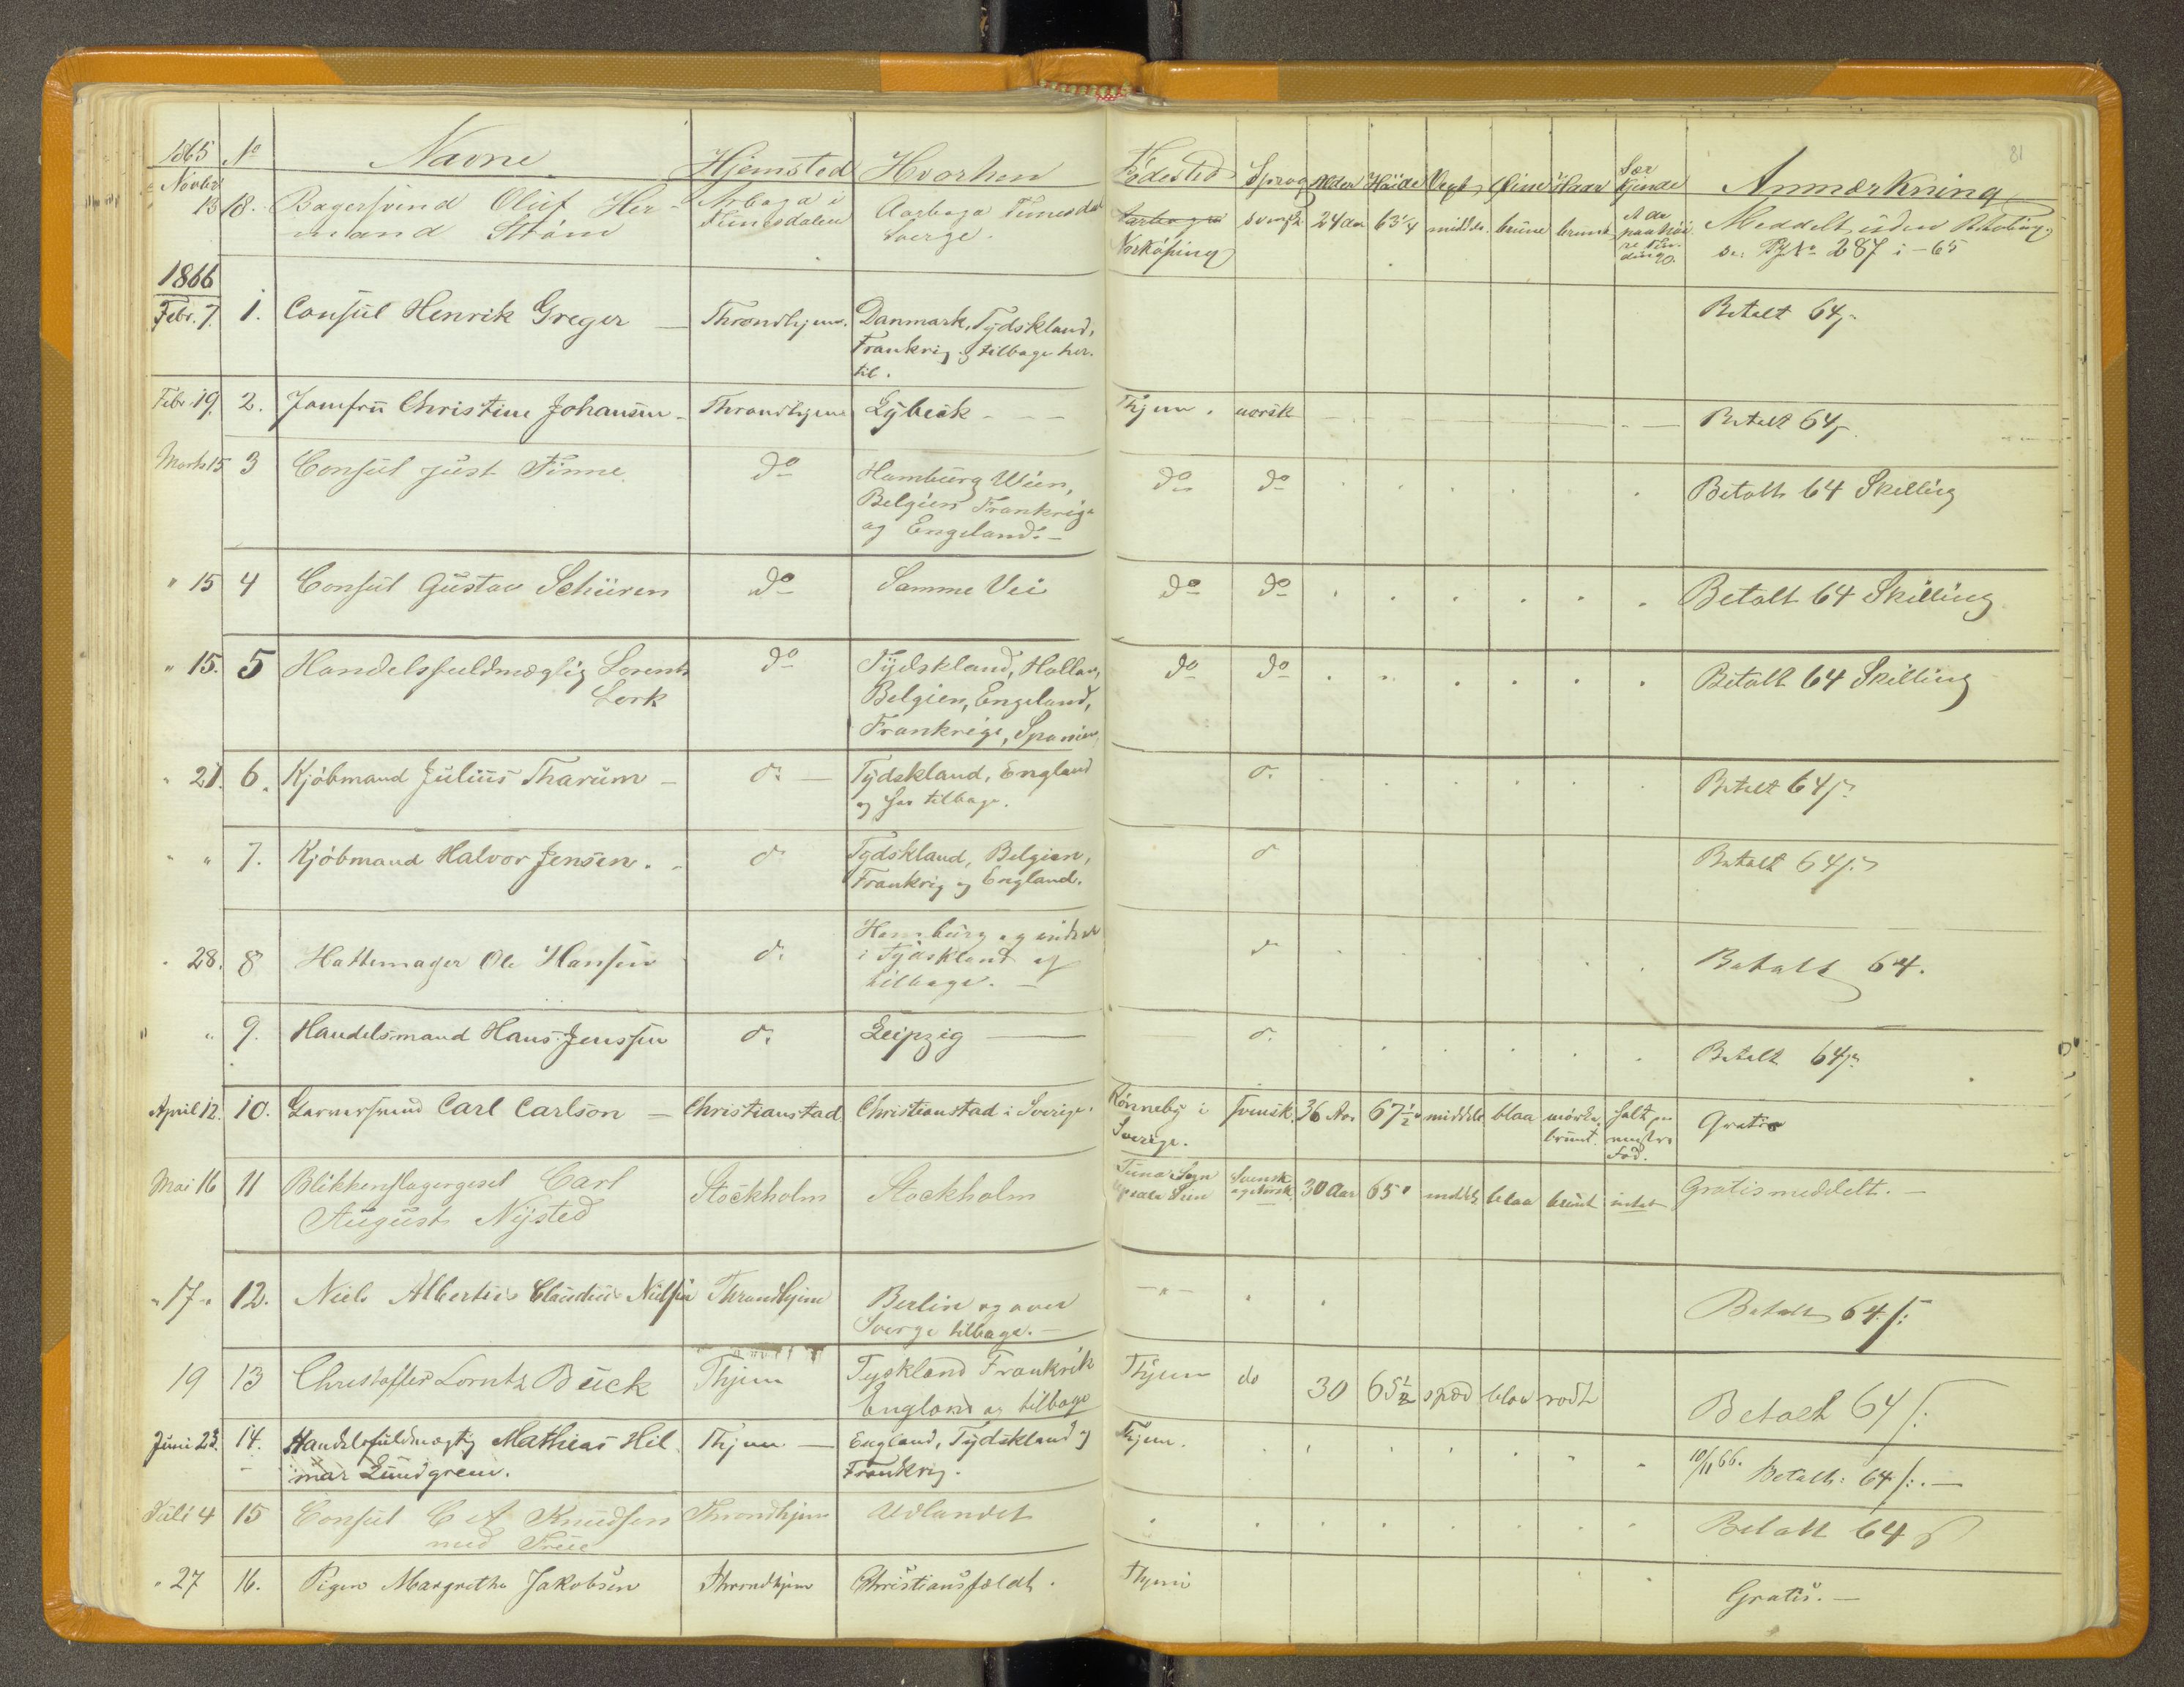 81
1865 No Navne Hjemsted Hvorhen Fødested Sprog Alder Høide Vext Øine Haar Sær Kjende Anmærkning
Novbr
13 18. Bagersvend Oluf Her- Arboga i Aarboga Tunesdal Svensk 24 Aar 63 1/4 midde. brune brunt Meddelt uden Betaling,
mand Strøm Tunesdalen Sverge. Norkøping se: Pg No 287 i -65
1866
Febr. 7. 1. Consul Henrik Greger Throndhjem. Danmark, Tydskland, Betalt 64
Frankrig og tilbage her-
til.
Febr. 19. 2. Jomfru Christine Johansen Throndhjem Lybeck Thjem. norsk Betalt 64
Marts 15 3 Consul Just Finne do Hamburg Wien, do do Betalt 64 Skilling
Belgien Frankrige
og Engeland.
" 15 4 Consul Gustav Schüren do Samme Vei do do Betalt 64 Skilling
" 15. 5 Handelsfuldmægtig Lorents do Tydskland, Hollan, do do Betalt 64 Skilling
Lork Belgien, Engeland,
Frankrige, Spanien,
" 21. 6. Kjøbmand Julius Tharum do Tydskland, England do Betalt 64
og tilbage.
" " 7. Kjøbmand Halvor Jensen. do Tydskland, Belgien, do Betalt 64
Frankrig og England.
" 28. 8 Hattemager Ole Hansen do Hamburg og do Betalt 64.
i Tydskland og
tilbage.
" 9. Handelsmand Hans Jenssen do Leipzig do Betalt 64
April 12. 10. Garversvend Carl Carlson Christianstad Christianstad i Sverige. Rønneby i Svensk. 36 Aar 67 1/2" middels blaa mørke Gratis
Sverige. brunt. venstre
Fod.
Mai 16 11 Blikkenslagergesel Carl Stockholm Stockholm Tuna Sogn Svensk 30 Aar 65" middels blaa brunt intet Gratis meddelt.
August Nysted Upsala og norsk
" 17 " 12. Niels Albertus Claudius Nielsen Throndhjem Berlin og over Betalt 64
Sverge tilbage.
19 13 Christoffer Lorntz Buck Thjem Tyskland Frankrik Thjem do 30 65 1/2 spæd blaa rødt Betalt 64
England og tilbage
Juni 23. 14. Handelsfuldmægtig Mathias Hil- Thjem England, Tydskland og Thjem. 10/11 66. Betalt: 64
mar Lundgreen. Frankrig.
Juli 4 15 Consul C A Knudsen Throndhjem Udlandet Betalt 64
med Frue
" 27 16. Pigen Margrethe Jakobsen Throndhjem Christiansfeldt. Thjem Gratis.